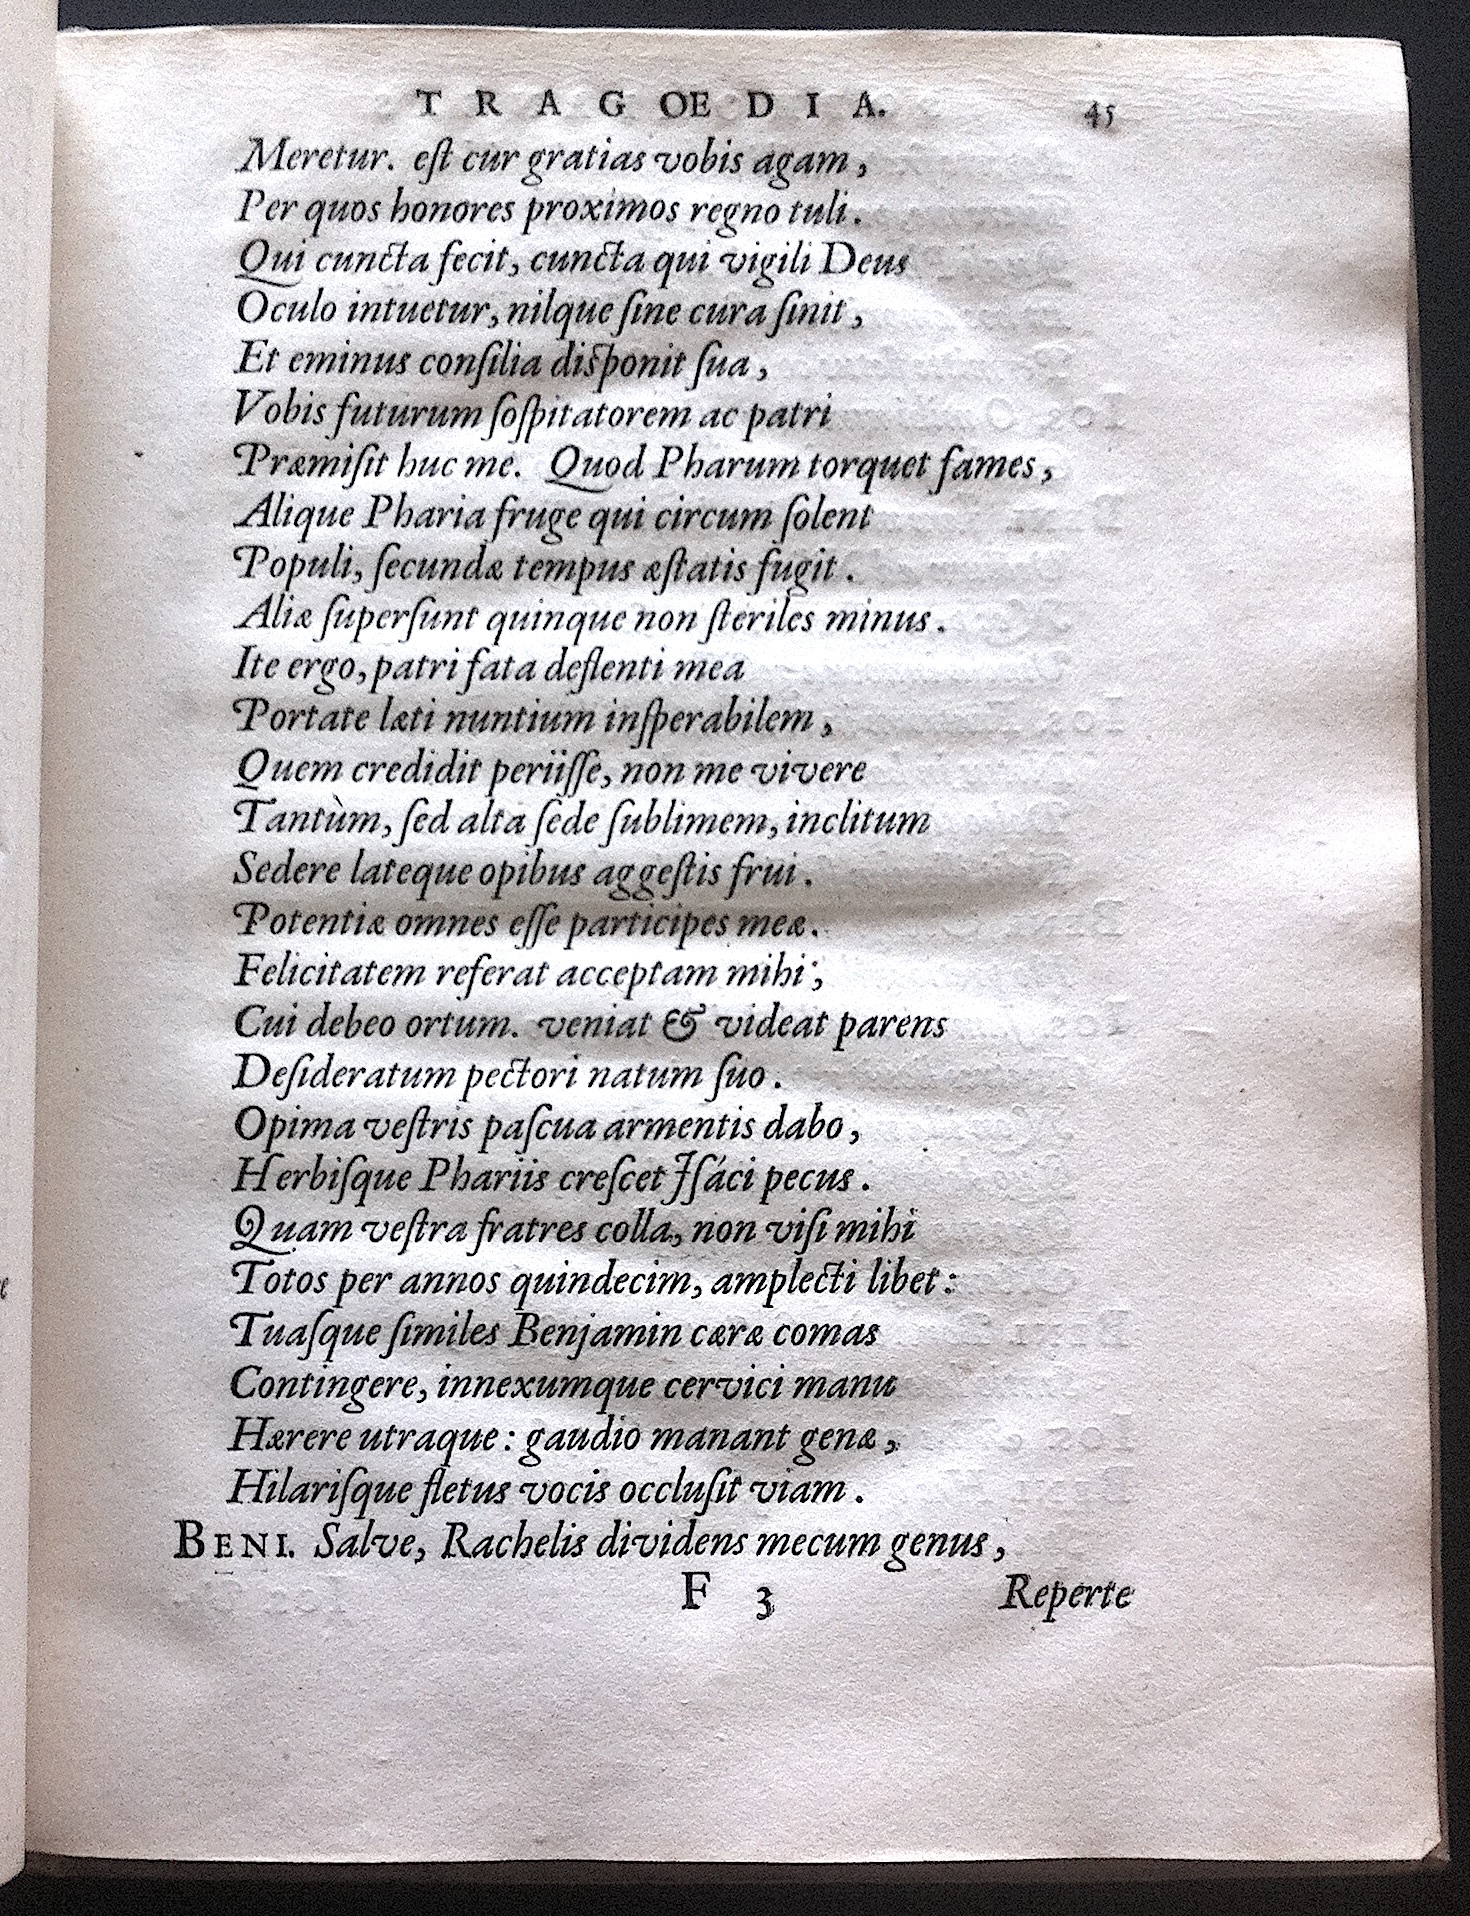 TRAGŒDIA. 45
Meretur. eſt cur gratias vobis agam,
Per quos honores proximos regno tuli.
Qui cuncta fecit, cuncta qui vigili Deus
Oculo intuetur, nilque ſine cura ſinit,
Et eminus conſilia diſponit ſua,
Vobis futurum ſoſpitatorem ac patri
Præmiſit huc me. Quod Pharum torquet fames,
Alique Pharia fruge qui circum ſolent
Populi, ſecundæ tempus æſtatis fugit.
Aliæ ſuperſunt quinque non ſteriles minus.
Ite ergo, patri fata deflenti mea
Portate læti nuntium inſperabilem,
Quem credidit periiſſe, non me vivere
Tantùm, ſed alta ſede ſublimem, inclitum
Sedere lateque opibus aggeſtis frui.
Potentiæ omnes eſſe participes meæ.
Felicitatem referat acceptam mihi,
Cui debeo ortum. veniat & videat parens
Deſideratum pectori natum ſuo.
Opima veſtris paſcua armentis dabo,
Herbiſque Phariis creſcet Iſáci pecus.
Quam veſtra fratres colla, non viſi mihi
Totos per annos quindecim, amplecti libet:
Tuaſque ſimiles Benjamin cæræ comas
Contingere, innexumque cervici manu
Hærere utraque: gaudio manant genæ,
Hilariſque fletus vocis occluſit viam.
BENI. Salve, Rachelis dividens mecum genus,
F 3 Reperte